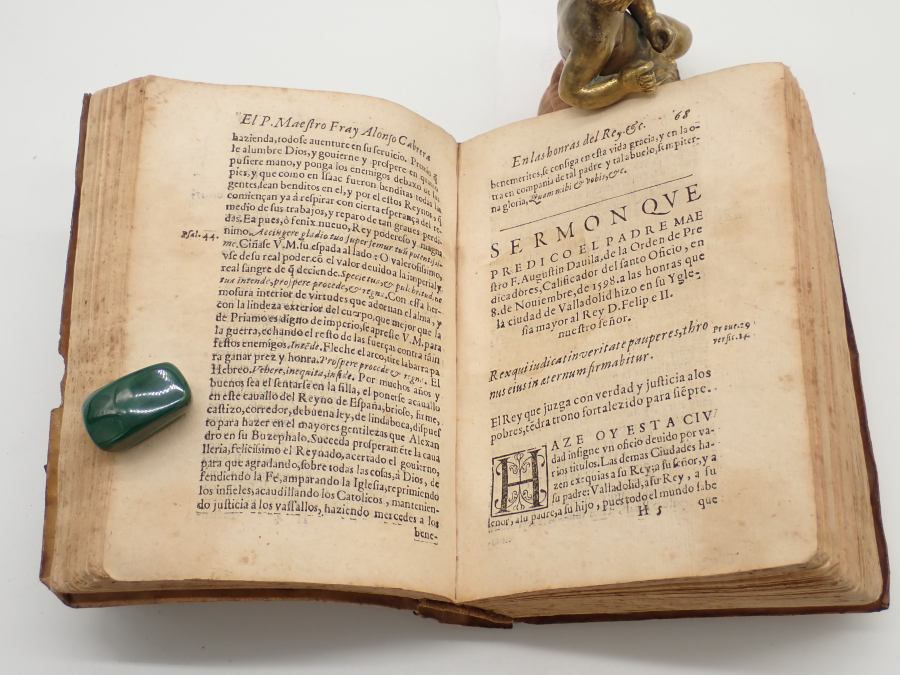 El P. Maestro Fray Alonso Cabrera
hazienda, todo se auenture en su seruicio.
le alumbre Dios, y gouierne y prospere en quanto
pusiere mano, y ponga los enemigos debaxo de sus
pies, y que como en Isaac fueron benditas todas las
gentes, sean benditos en el, y por el estos Reynos, q̃
comiençan ya â respirar con cierta esperança del re-
medio de sus trabajos, y reparo de tan graues perdi-
das. Ea pues, ô fenix nueuo, Rey poderoso y magna
nimo. Accingere gladio tuo super femur tuũ potentissi-
Psal. 44.
me. Ciñase V. M. su espada al lado: O valerosissimo,
vse de su real poder cõ el valor deuido la imperial y
real sangre de q̃ deciende. Specie tua, & pulchritudine
tua intende, prospere procede, & regna. Con essa her-
mosura interior de virtudes que adornan el alma, y
con la lindeza exterior del cuerpo, que mejor que la
de Priamo es digno de imperio, se apreste V. M. para
la guerra, echando el resto de las fuerças contra tã in
festos enemigos. Intẽde. Fleche el arco, tire la barra pa
ra ganar prez y honra. Prospere procede & regna. El
Hebreo. Vehere, inequita, inside. Por muchos años y
buenos sea el sentarse en la silla, el ponerse acauallo
en este cauallo del Reyno de España, brioso, firme,
castizo, corredor, de buena ley, de linda boca, dispues
to para hazer en el mayores gentilezas que Alexan
dro en su Buzephalo, Suceda prosperamẽte la caua
lleria, felicissimo el Reynado, acertado el gouierno,
para que agradando, sobre todas las cosas, à Dios, de
fendiendo la Fè, amparando la Iglesia, reprimiendo
los infieles, acaudillando los Catolicos, mantenien-
do justicia à los vassallos, haziendo mercedes a los
bene-
En las honras del Rey, &c. 68
benemeritos, se consiga en esta vida gracia, y en la o-
tra en compañia de tal padre y tal abuelo, sempiter-
na gloria, Quam mihi & vobis, &c.
SERMON QVE
PREDICO EL PADRE MAE
stro F. Augustin Dauila, de la Orden de Pre
dicadores, Calificador del santo Oficio, en
8. de Nouiembre, de 1598. a las honras que
la ciudad de Valladolid hizo en su Ygle-
sia mayor al Rey D. Felipe II.
nuestro señor.
Rex qui iudicat in veritate pauperes, thro
nus eius in æternum firmabitur.
Proue. 29
versic. 14.
El Rey que juzga con verdad y justicia a los
pobres, tẽdra trono fortalezido para siẽpre.
HAZE OY ESTA CIV
dad insigne vn oficio deuido por va-
rios titulos. Las demas Ciudades ha-
zen exequias a su Rey, a su señor, y a
su padre: Valladolid, a su Rey, a su
señor, a su padre, a su hijo, pues todo el mundo sabe
H 5 que